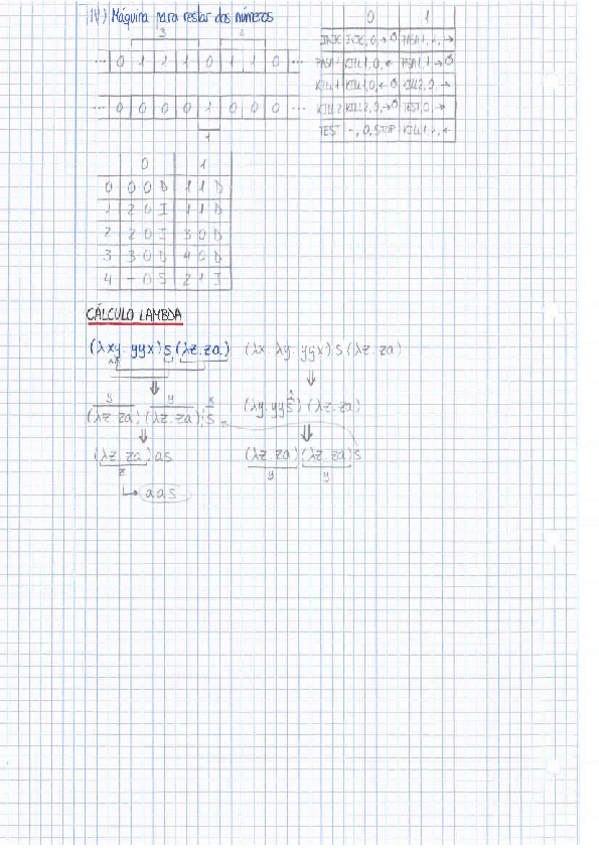 IV) Máquina para restar dos números
3 2
... 0 1 1 1 0 1 1 0 ...
... 0 0 0 0 1 0 0 0 ...
1
0 1
KILL 2 KILL 2, 0, → TEST, 0, →
TEST -, 0, STOP KILL 1, 1, ←
0 1
0 0 0 D 1 1 D
1 2 0 I 1 1 D
2 2 0 I 3 0 D
3 3 0 D 4 0 D
4 - 0 S 2 1 I
CÁLCULO LAMBDA
(λxy. yyx) s (λz. za) (λx. λy. yyx) s (λz. za)
⇓ ⇓
y y x
(λz. za) (λz. za) s (λy. yys) (λz. za)
⇓ ⇓
(λz. za) as (λz. za) (λz. za) s
z y y
↳ aas